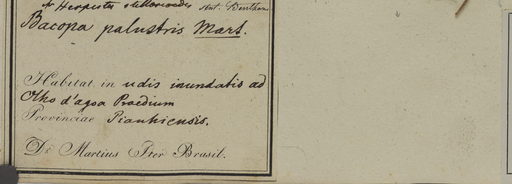 Herpestes stellarioides Aut. Bentham
Bacopa palustris Mart.
Habitat in udis inundatis ad
Olho d'agoa Praedium
Provinciae Piauhiensis.
De Martius Iter Brasil.